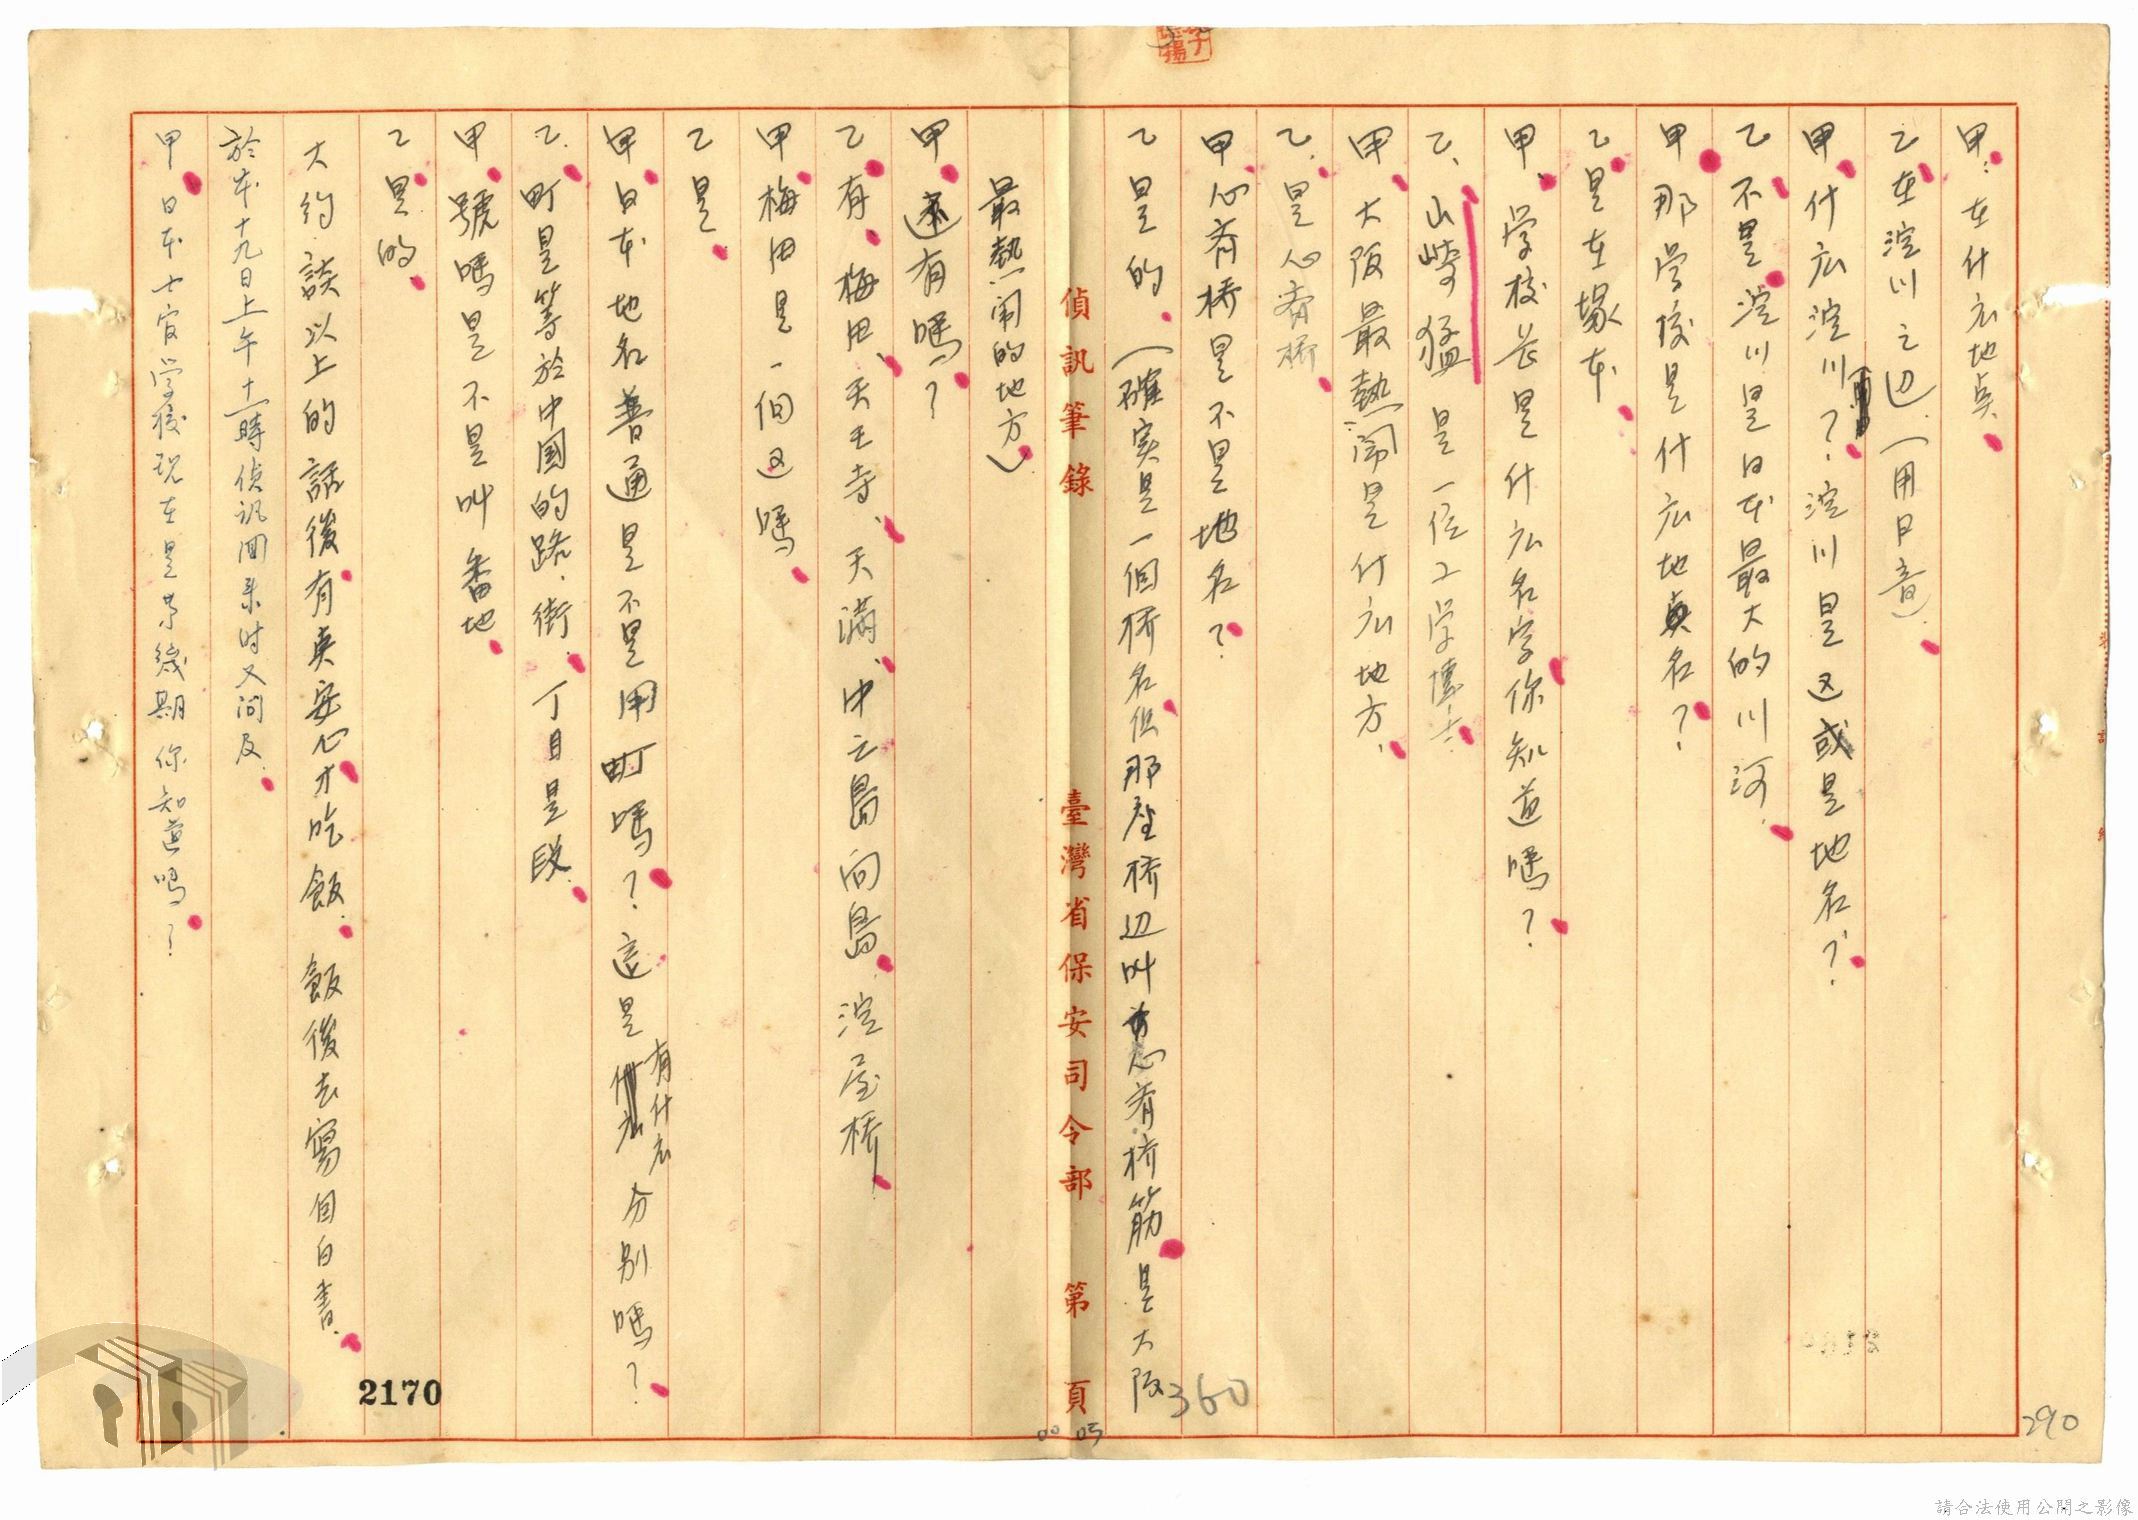 甲：在什広地点
乙在淀川之辺（用日音）
甲、什広淀川？淀川是区或是地名？
乙不是淀川是日本最大的川河
甲那学校是什広地真名？
乙是在塚本
甲、学校長是什広名字你知道嗎？
乙、山崎猛是一位工学博士
甲大阪最熱闹是什広地方、
乙、是心斉桥
甲心斉桥是不是地名？
乙是的、（確実是一個桥名但那座桥辺叫心斉桥筋是大阪
偵訊筆錄 臺灣省保安司令部 第 頁
最熱闹的地方）
甲、还有嗎？
乙有、梅田、天王寺、天满、中之島向島淀屋桥
甲梅田是一個区嗎
乙是、
甲日本地名普通是不是用町嗎？這是有什広分别嗎？
乙、町是等於中国的路、街、丁目是段
甲號嗎是不是叫番地
乙是的
大約談以上的話後有点安心才吃飯、飯後去寫自白書、
於本十九日上午十一時偵訊回来时又问及
甲日本士官学校现在是第幾期你知道嗎？
2170
360
290
00 05
請合法使用公開之影像